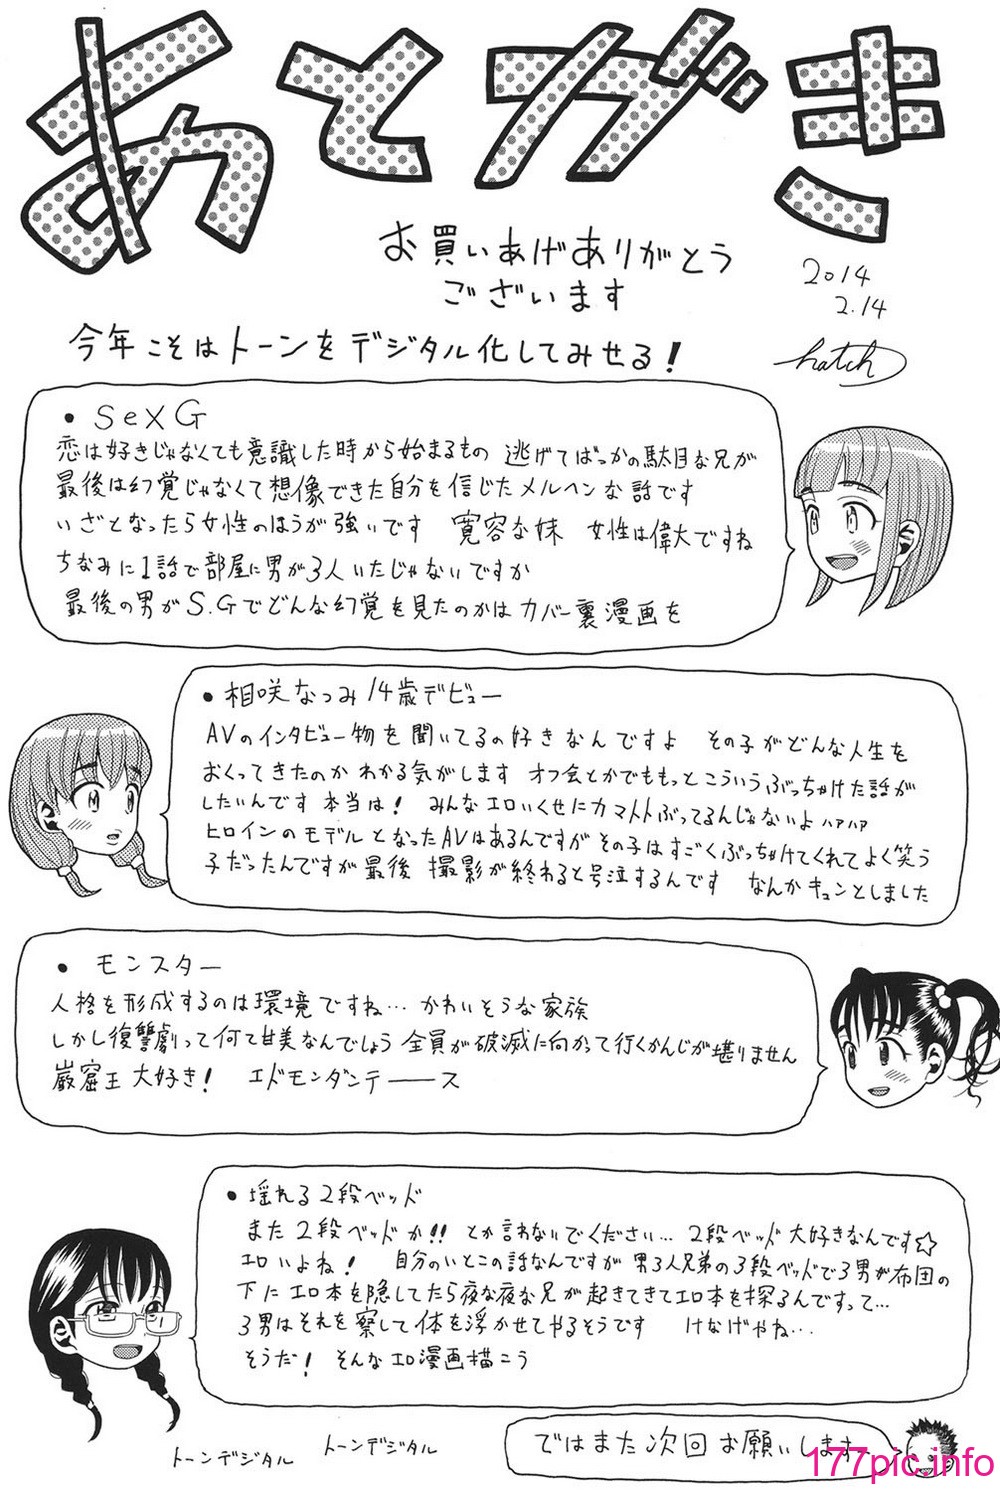 あとがき
お買いあげありがとう
ございます
2014
2.14
今年こそはトーンをデジタル化してみせる!
hatch
・SeX G
恋は好きじゃなくても意識した時から始まるもの 逃げてばっかの駄目な兄が
最後は幻覚じゃなくて想像できた自分を信じたメルヘンな話です
いざとなったら女性のほうが強いです 寛容な妹 女性は偉大ですね
ちなみに1話で部屋に男が3人いたじゃないですか
最後の男がS.Gでどんな幻覚を見たのかはカバー裏漫画を
・相咲なつみ14歳デビュー
AVのインタビュー物を聞いてるの好きなんですよ その子がどんな人生を
おくってきたのかわかる気がします オフ会とかでももっとこういうぶっちゃけた話が
したいんです本当は! みんなエロいくせにカマトトぶってるんじゃないよハァハァ
ヒロインのモデルとなったAVはあるんですがその子はすごくぶっちゃけてくれてよく笑う
子だったんですが最後 撮影が終わると号泣するんです なんかキュンとしました
・モンスター
人格を形成するのは環境ですね… かわいそうな家族
しかし復讐劇って何て甘美なんでしょう 全員が破滅に向かって行くかんじが堪りません
巌窟王大好き! エドモンダンテ――ス
・揺れる2段ベッド
また2段ベッドか!! とか言わないでください… 2段ベッド大好きなんです☆
エロいよね! 自分のいとこの話なんですが男3人兄弟の3段ベッドで3男が布団の
下にエロ本を隠してたら夜な夜な兄が起きてきてエロ本を探るんですって…
3男はそれを察して体を浮かせてやるそうです けなげやね…
そうだ! そんなエロ漫画描こう
トーンデジタル
トーンデジタル
ではまた次回お願いします
177pic.info